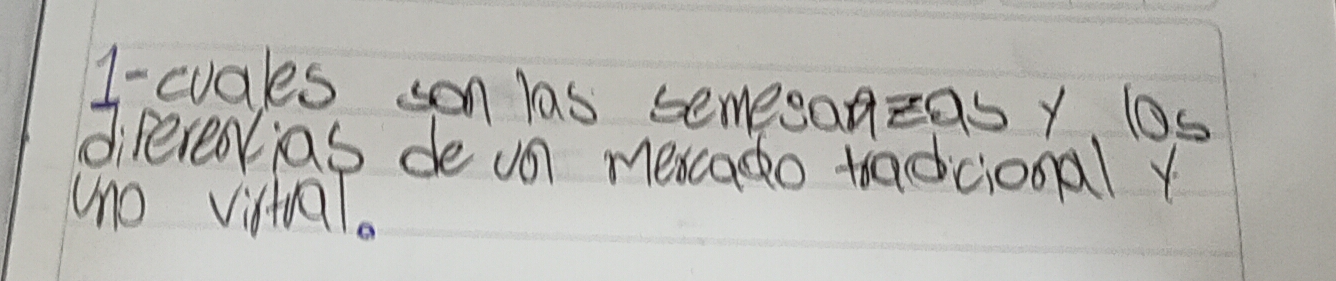 1-cuales son las semesanzas y los
diferencias de un mercado tradicional y
uno virtual.